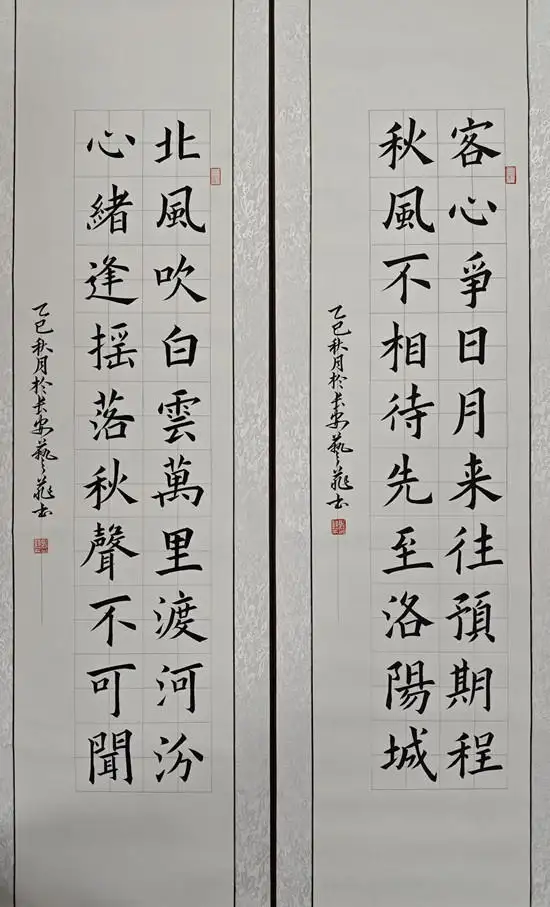 客心爭日月来往預期程
秋風不相待先至洛陽城
乙巳秋月於长安藝
北風吹白雲萬里渡河汾
心緒逢摇落秋聲不可聞
乙巳秋月於长安藝